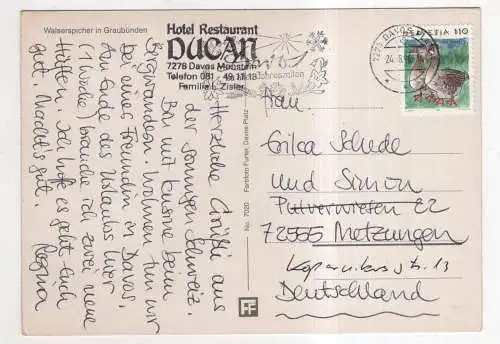 Walserspicher in Graubünden
Hotel Restaurant
DUCAN
7278 Davos Monstein
Telefon 081 - 49 11 13
Familie L. Zisler
Jahreszeiten
7270 DAVOS
24. 8.
HELVETIA 110
Herzliche Grüße aus
der sonnigen Schweiz.
Bin mit Karine beim
Bergwandern. Wohnen tun wir
bei einer Freundin in Davos.
Am Ende des Urlaubs hier
(1 Woche) brauche ich zwei neue
Hüften. Ich hoffe es geht Euch
gut. Macht's gut.
Regina
No. 7020
Fartfoto Furter, Davos-Platz
FF
Frau
Erika Schede
und Simon
Pulverwiesen 22
72555 Metzungen
Kopernikusstr. 13
Deutschland